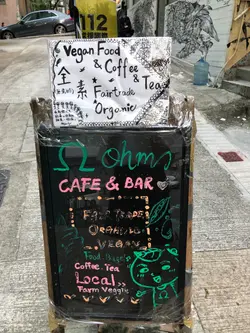 112
Vegan Food
& Coffee
& Tea
全素
Fairtrade
Organic
Ω ohms
CAFE & BAR
FAIR TRADE
ORGANIC
VEGAN
Coffee Tea
Local >>
Farm Veggie